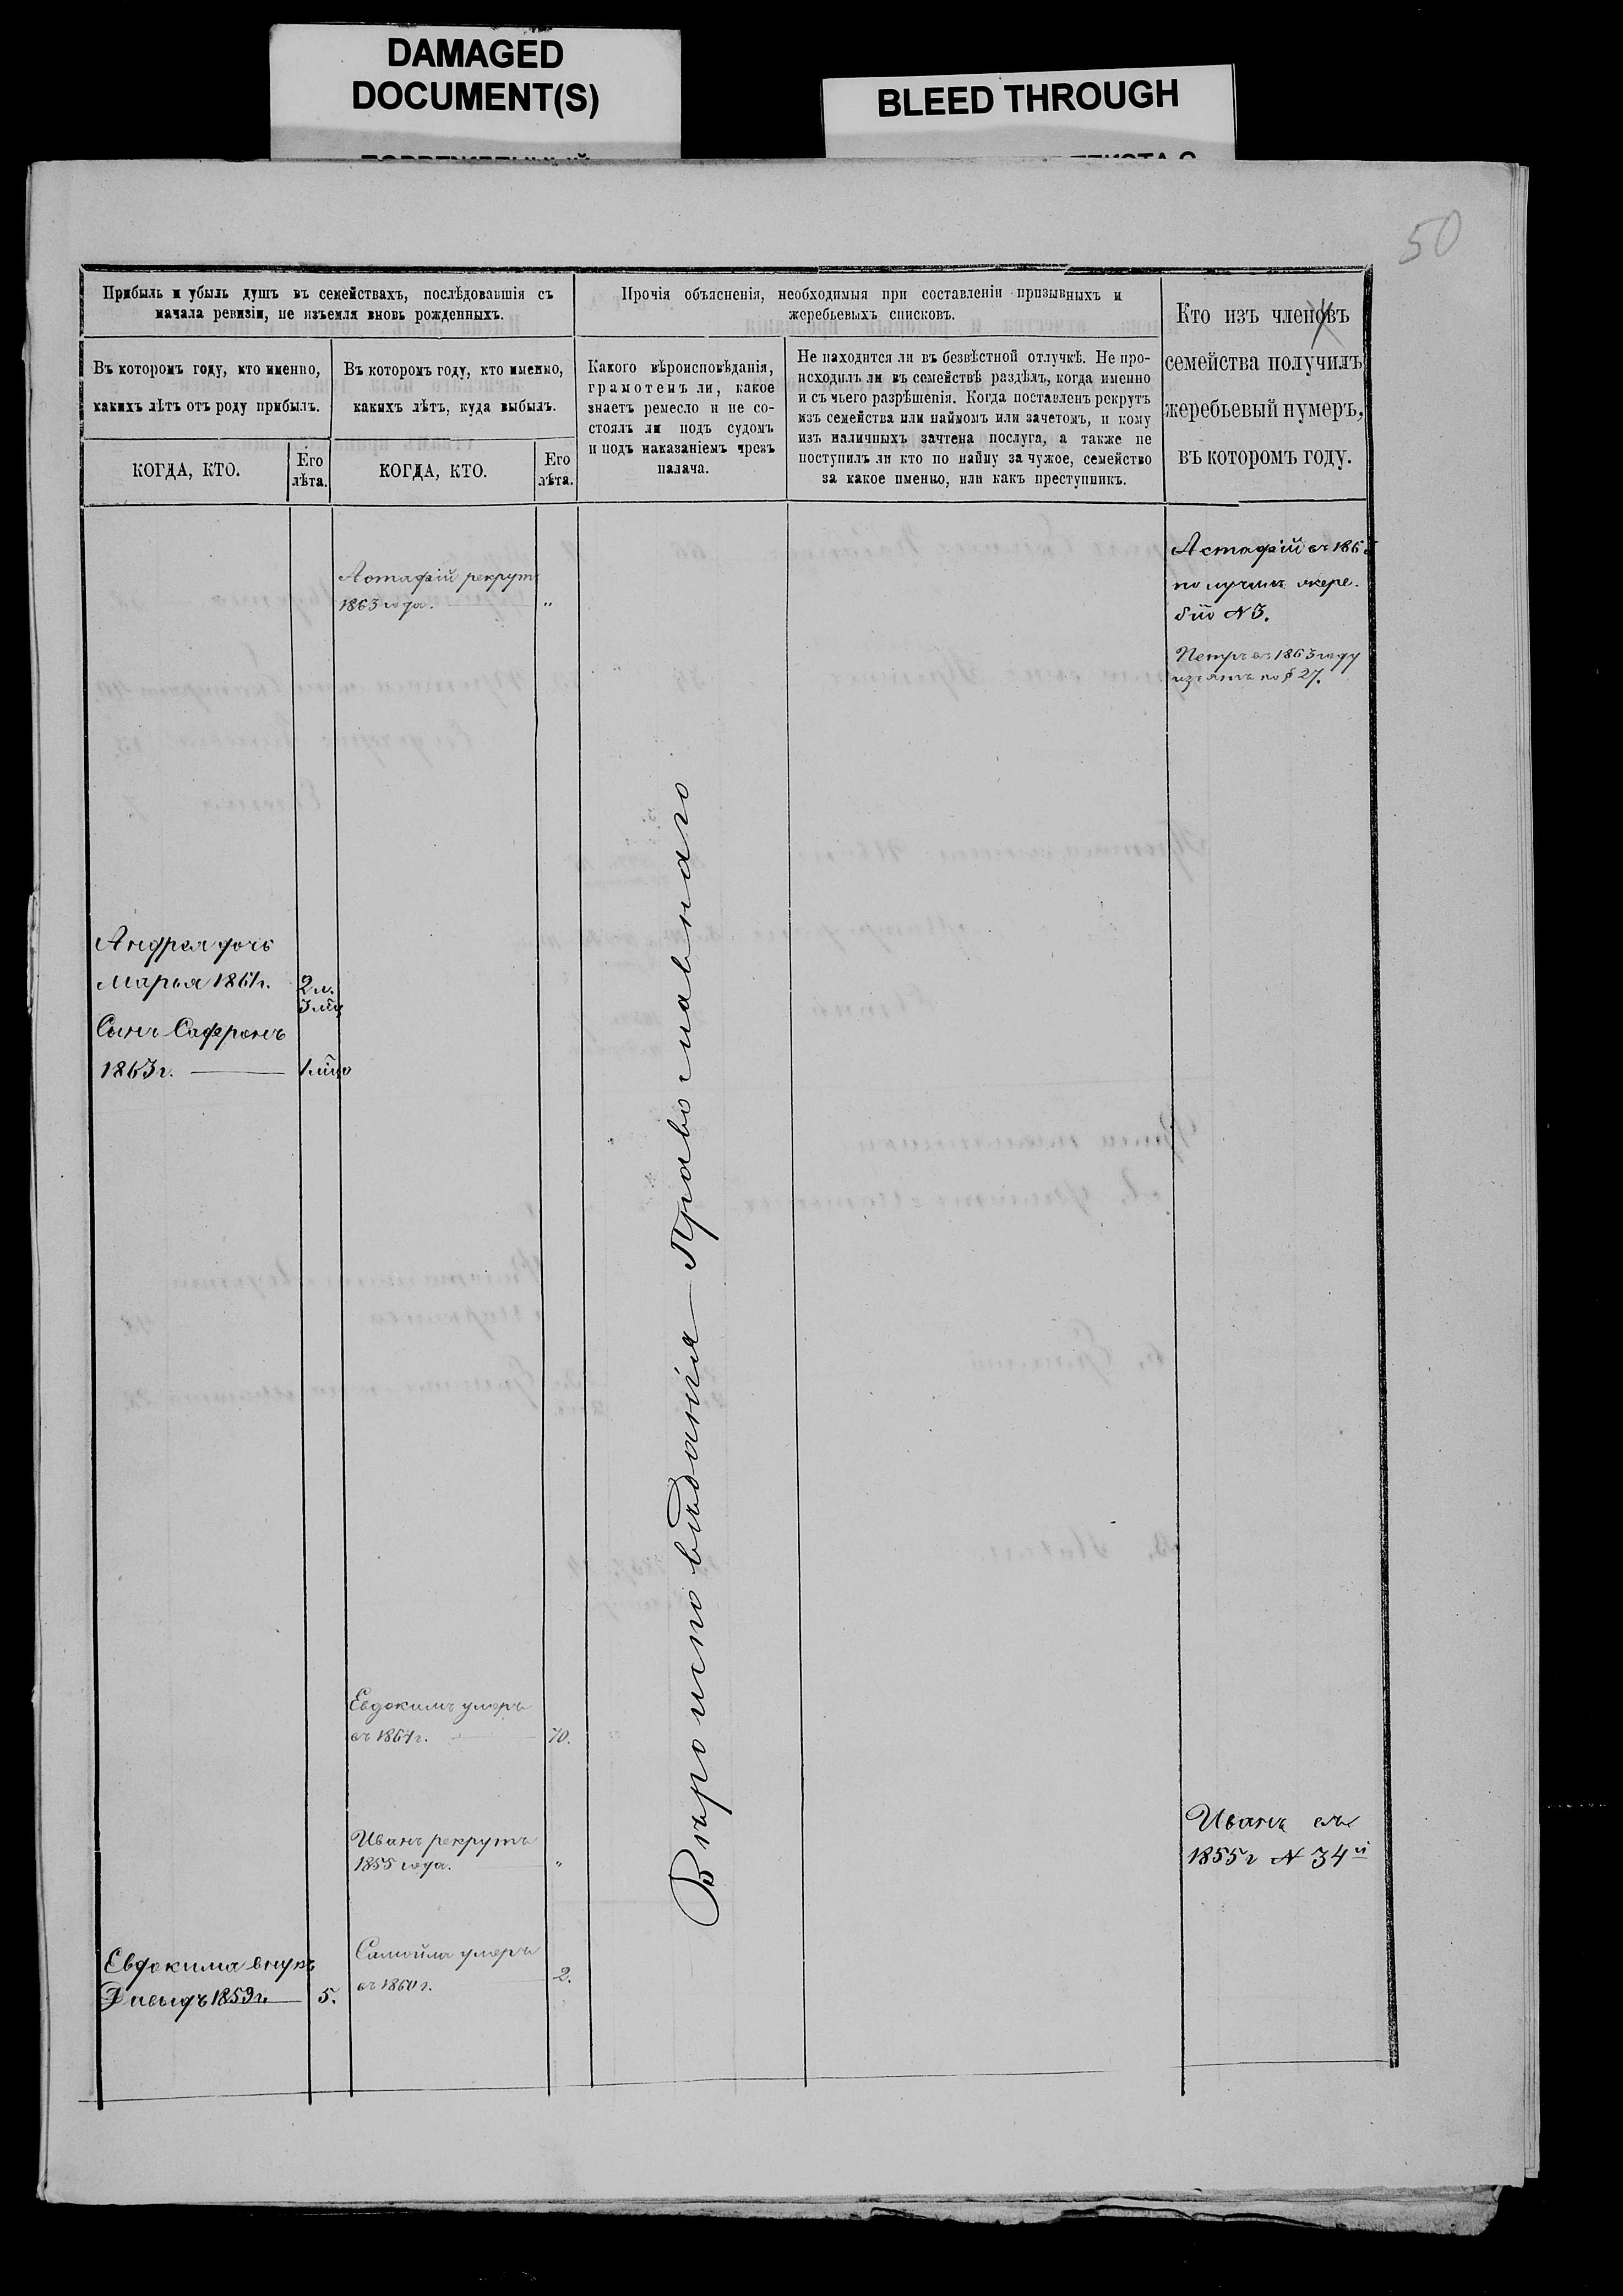 DAMAGED
DOCUMENT(S)
BLEED THROUGH
50
Прибыль и убыль душъ въ семействахъ, послѣдовавшія съ
начала ревизіи, не изъемля вновь рожденныхъ.
Въ которомъ году, кто именно,
какихъ лѣтъ отъ роду прибылъ.
КОГДА, КТО.
Его
лѣта.
Въ которомъ году, кто именно,
какихъ лѣтъ, куда выбылъ.
КОГДА, КТО.
Его
лѣта.
Прочія объясненія, необходимыя при составленіи призывныхъ и
жеребьевыхъ списковъ.
Какого вѣроисповѣданія,
грамотенъ ли, какое
знаетъ ремесло и не со-
стоялъ ли подъ судомъ
и подъ наказаніемъ чрезъ
палача.
Не находится ли въ безвѣстной отлучкѣ. Не про-
исходилъ ли въ семействѣ раздѣлъ, когда именно
и съ чьего разрѣшенія. Когда поставленъ рекрутъ
изъ семейства или наймомъ или зачетомъ, и кому
изъ наличныхъ зачтена послуга, а также не
поступилъ ли кто по найму за чужое, семейство
за какое именно, или какъ преступникъ.
Кто изъ членовъ
семейства получилъ
жеребьевый нумеръ,
въ которомъ году.
Астафій рекрутъ
1863 года. "
Астафій въ 186
получилъ жере-
бій № 3.
Петръ въ 1863 году
изъятъ по § 27.
Андрея дочь
Марья 1861г. 2 л.
3 мѣ
Сынъ Сафронъ
1863г. 1 мѣс
Вѣроисповѣданія — Православнаго
Евдокимъ умеръ
въ 1864г. 70.
Иванъ рекрутъ
1855 года. "
Иванъ въ
1855г № 34й
Евдокима внукъ
Давыдъ 1859г. 5.
Самойла умеръ
въ 1860г. 2.